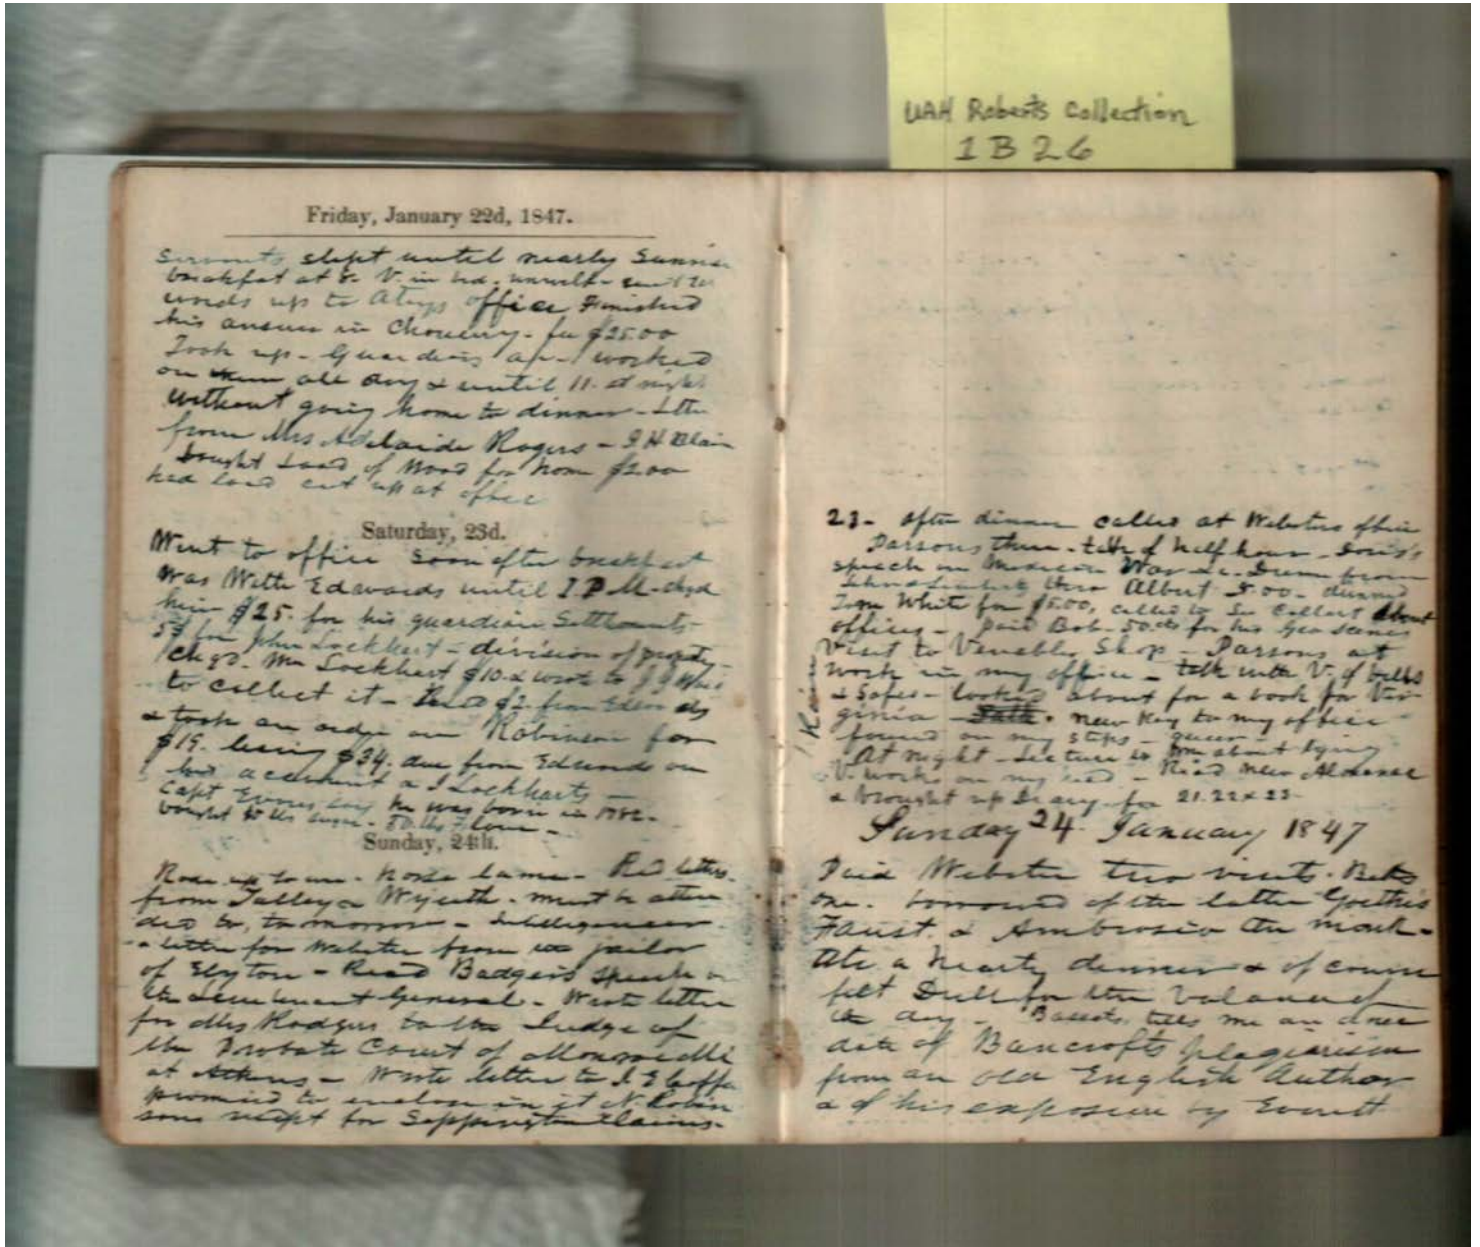 UAH Roberts Collection
1B26
Friday, January 22d, 1847.
Servants slept until nearly Sunrise
breakfast at 8. V. in bed. unwell -
up to office Finished
his answer in Chancery - fee $25.00
Took up - Guardians a/c - worked
on them all day & until 11. at night
without going home to dinner - letter
from Mrs Adelaide Rogers - J H Blair
bought Load of Wood for home $2.00
had load cut up at office
Saturday, 23d.
Went to office soon after breakfast
Was With Edwards until 1. P M - chgd
him $25. for his guardian Settlements
for John Lockhart - division of property -
Chgd. Mr Lockhart $10. & wrote to J J
to collect it - $2. from
& took an order on Robinson for
$19. being $34. due from Edwards on
his account & J Lockharts -
Capt says he was born in 1782 -
bought 50 lbs sugar - 50 lbs flour -
Sunday, 24th.
Rose up to - horse lame - Red letters
from Talley & Wyeth - must be atten
ded to, tomorrow - Intelligencer
a letter for Webster from the jailor
of Elyton - Read Badgers speech on
the Lieutenant General - Wrote letter
for Mrs Rodgers to the Judge of
the Probate Court of
at Athens - Wrote letter to J E
promised to enclose in it N. Robin
sons receipt for Sappington claims -
23 - After dinner called at Websters office
Parsons there - talk of half hour -
speech on Mexican War &c. from
Albert 5.00 - dunned
Tom White for $5.00, called to See Collart about
offices - paid Bob - 50 cts for his
Visit to Venables Shop - Parsons at
work in my office - talk with V. of bells
& Safes - looked about for a book for Vir
ginia - new key to my office
found on my steps - queer -
Rain
At night - Lecture to Tom about lying
V. works on my - Read new Almanac
& brought up Diary for 21. 22 & 23 -
Sunday 24. January 1847
Paid Webster two visits. Betts
one. borrowed of the latter Goethe's
Faust & Ambrosio the monk -
Ate a hearty dinner & of course
felt Dull for the balance of
the day - tells me an anec
dote of Bancrofts plagiarism
from an old English Author
& of his exposure by Everett